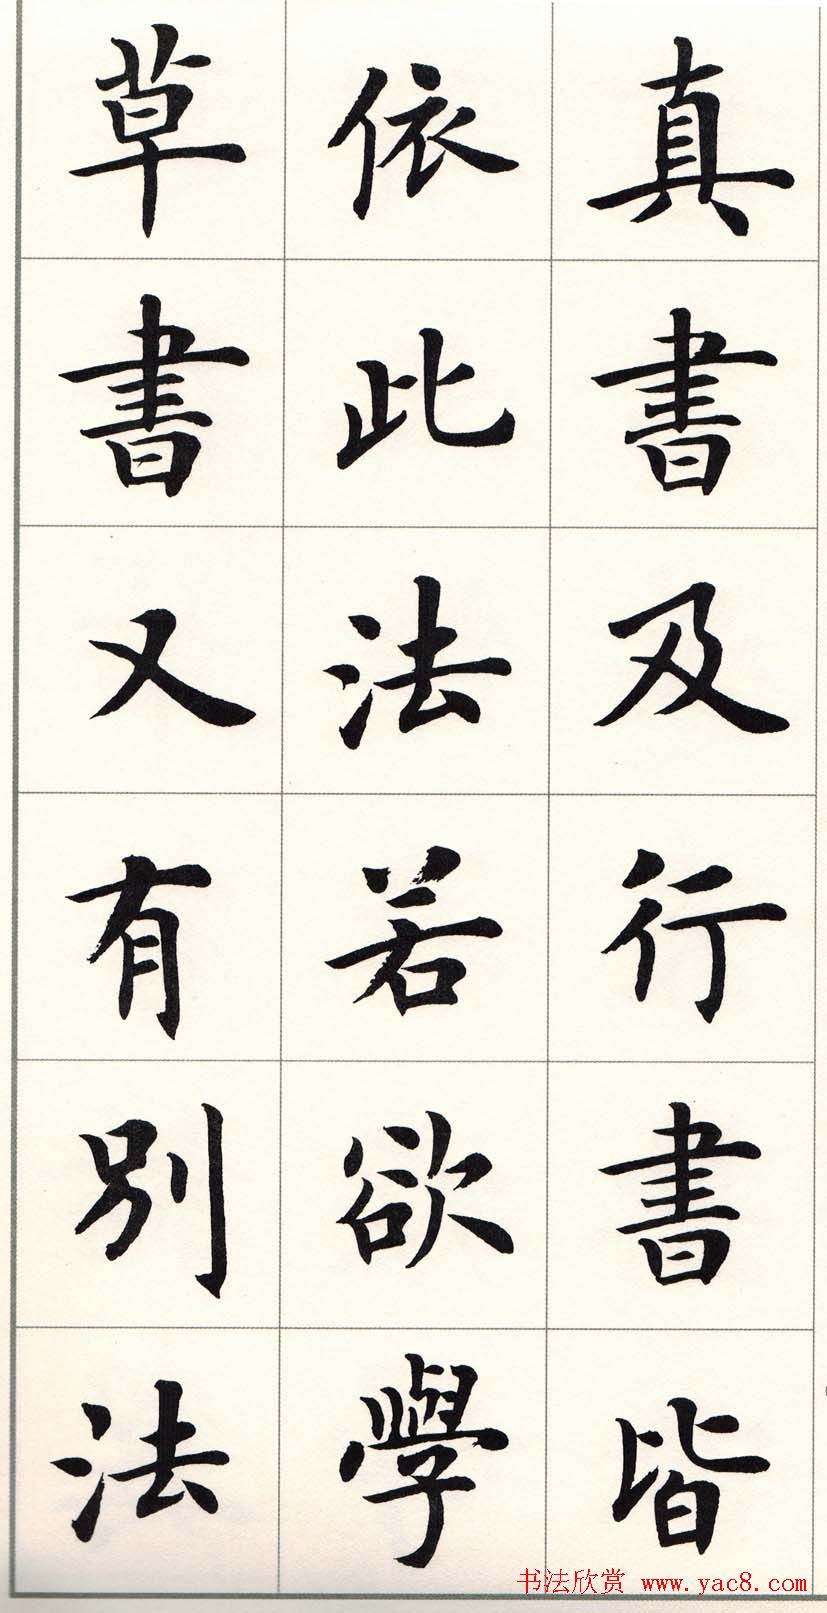 真書及行書皆
依此法若欲學
草書又有別法
书法欣赏 www.yac8.com